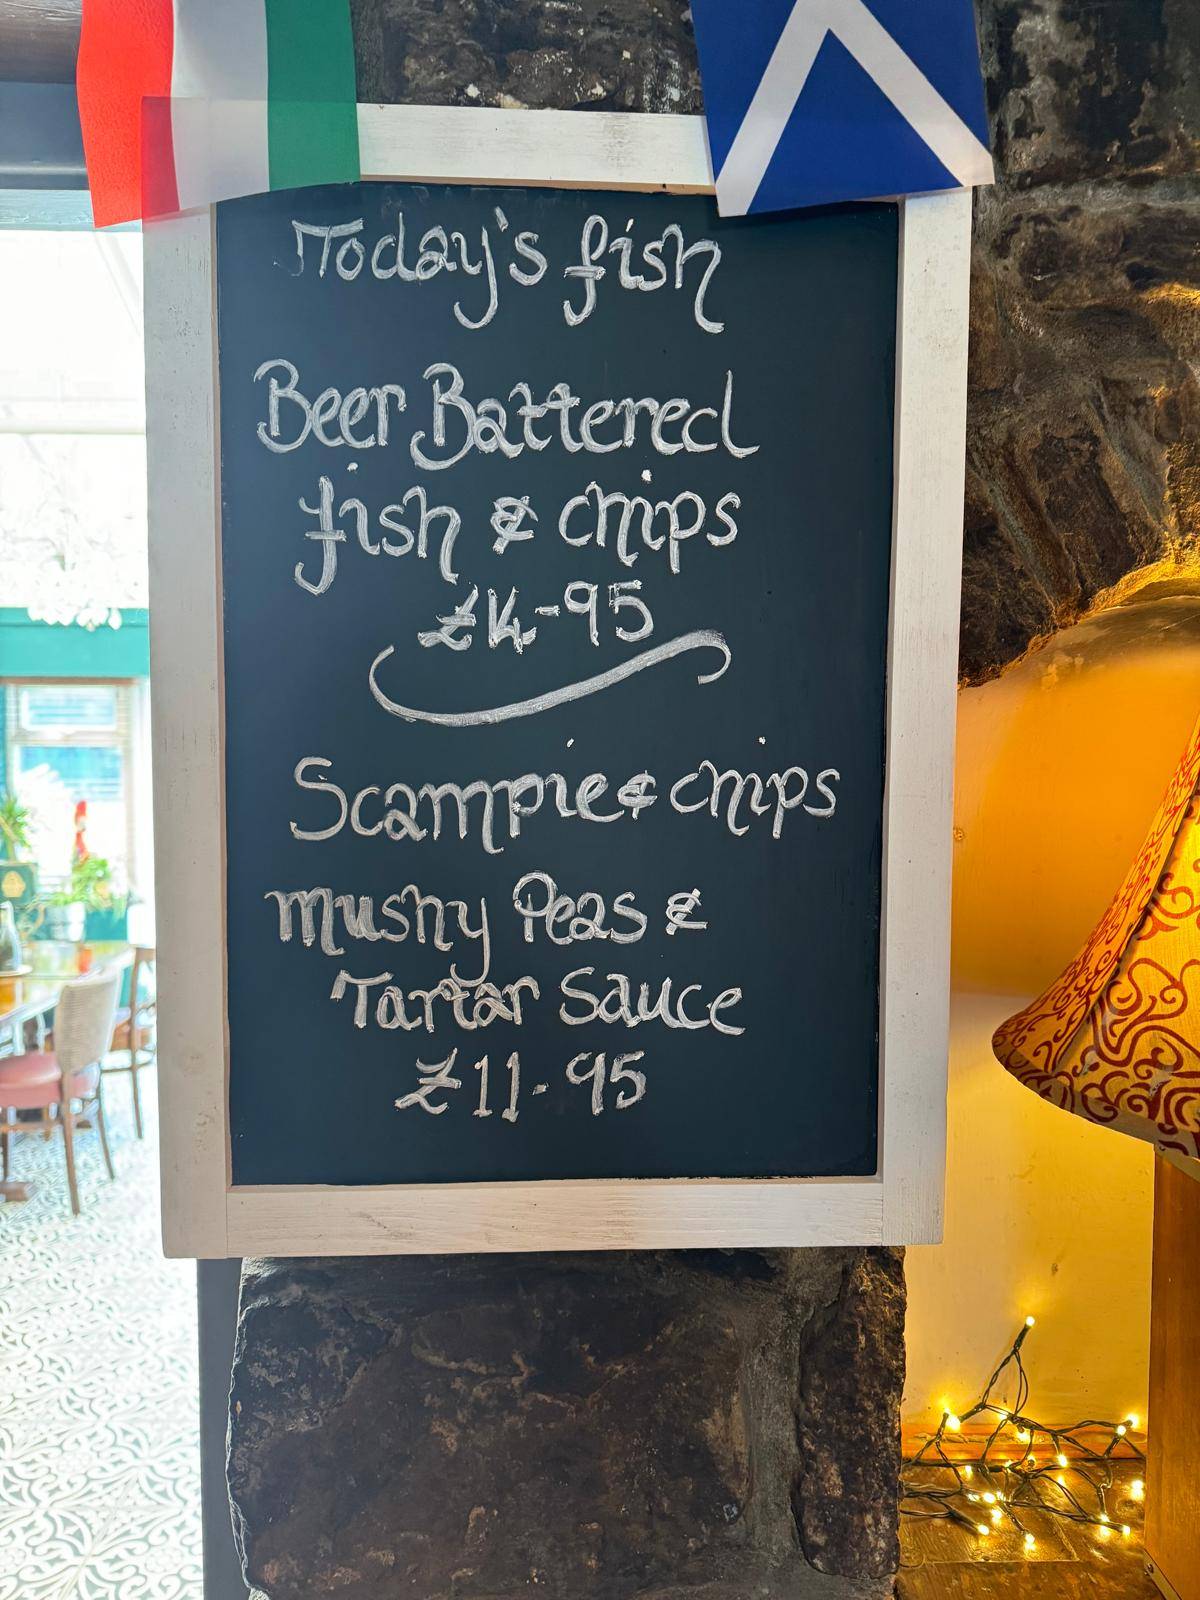 Today's fish
Beer Battered
fish & chips
£14-95
Scampie & chips
mushy Peas &
Tartar Sauce
£11-95